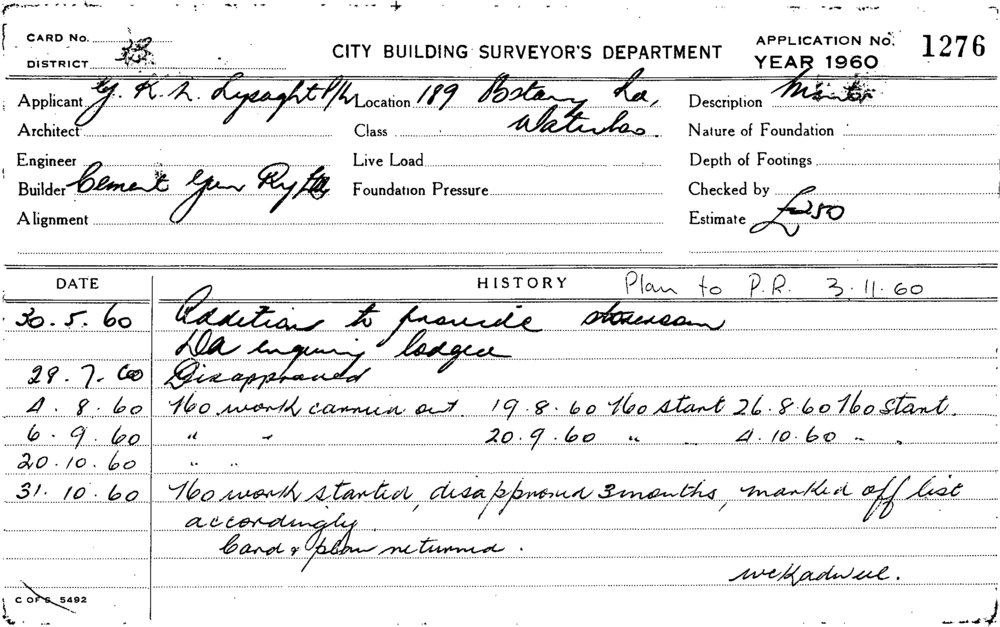 CARD No.
DISTRICT
CITY BUILDING SURVEYOR'S DEPARTMENT
APPLICATION No. 1276
YEAR 1960
Applicant G. K. N. Lysaght P/L Location 189 Botany Rd, Description
Architect Class Waterloo. Nature of Foundation
Engineer Live Load Depth of Footings
Builder Cement Gun Pty Ltd Foundation Pressure Checked by
Alignment Estimate £250
DATE HISTORY Plan to P.R. 3.11.60
30.5.60 Additions to provide storeroom
DA enquiry lodged
29.7.60 Disapproved
4.8.60 No work carried out. 19.8.60 No start 26.8.60 No start.
6.9.60 " " 20.9.60 " 4.10.60 " .
20.10.60 " "
31.10.60 No work started, disapproved 3 months, marked off list
accordingly.
Card & plan returned.
C OF S 5492